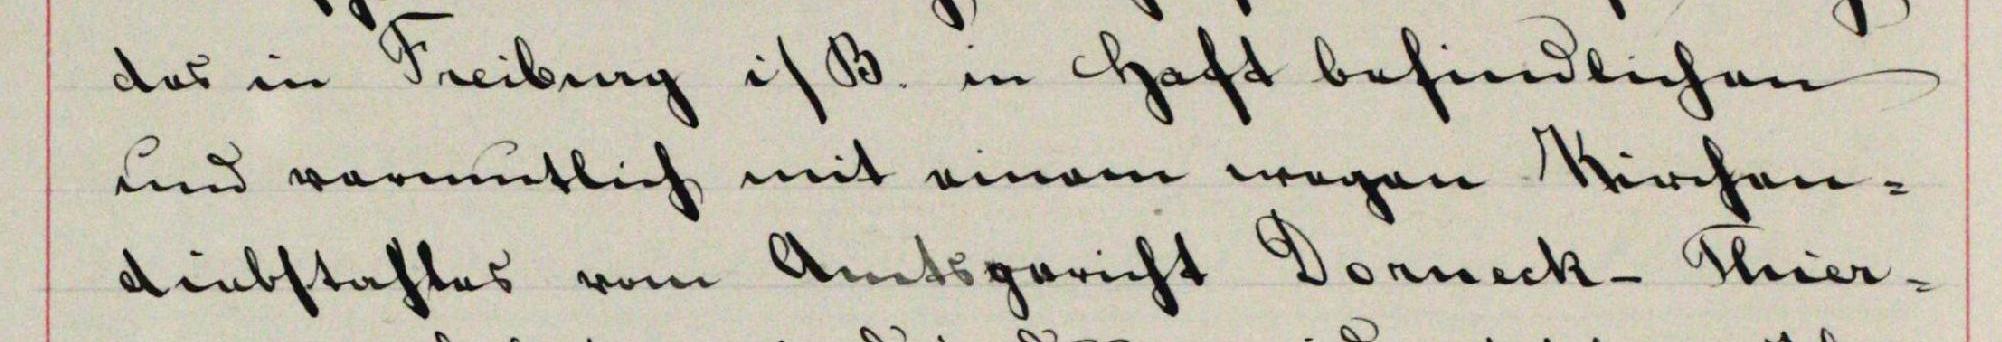 des in Freiburg i/B. in Haft befindlichen
und vermutlich mit einem wegen Kirchen-
diebstahles vom Amtsgericht Dorneck- Thier-